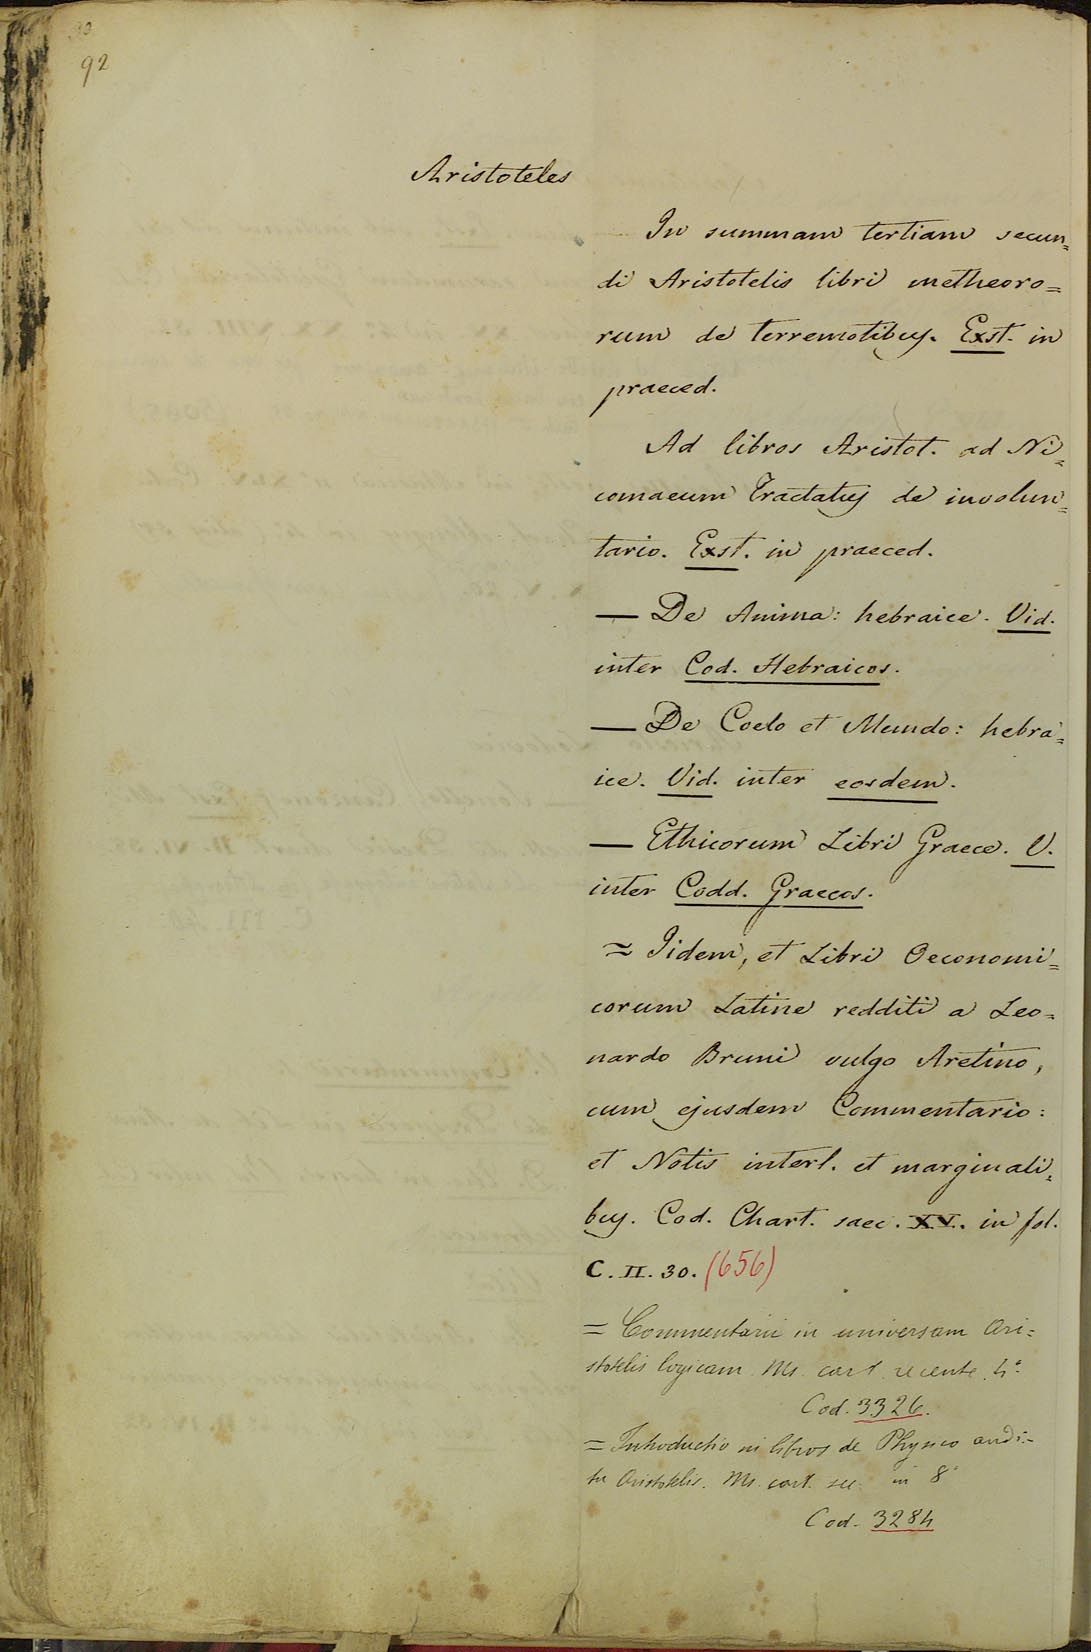 92
Aristoteles
In summam tertiam secun=
di Aristotelis libri metheoro=
rum de terremotibus. Exst. in
praeced.
Ad libros Aristot. ad Ni=
comacum Tractatus de involun=
tario. Exst. in praeced.
— De Anima: hebraice. Vid.
inter Cod. Hebraicos.
— De Coelo et Mundo: hebra=
ice. Vid. inter eosdem.
— Ethicorum Libri Graece. V.
inter Codd. Graecos.
= Iidem, et Libri Oeconomi=
corum Latine redditi a Leo=
nardo Bruni vulgo Aretino,
cum ejusdem Commentario:
et Notis interl. et marginali=
bus. Cod. Chart. saec. XV. in fol.
C. II. 30. (656)
= Commentarii in universam Ari=
stotelis logicam Ms. cart. recente. 4°.
Cod. 3326.
= Introductio in libros de Physico audi-
tu Aristotelis. Ms. cart. sec. in 8°
Cod. 3284